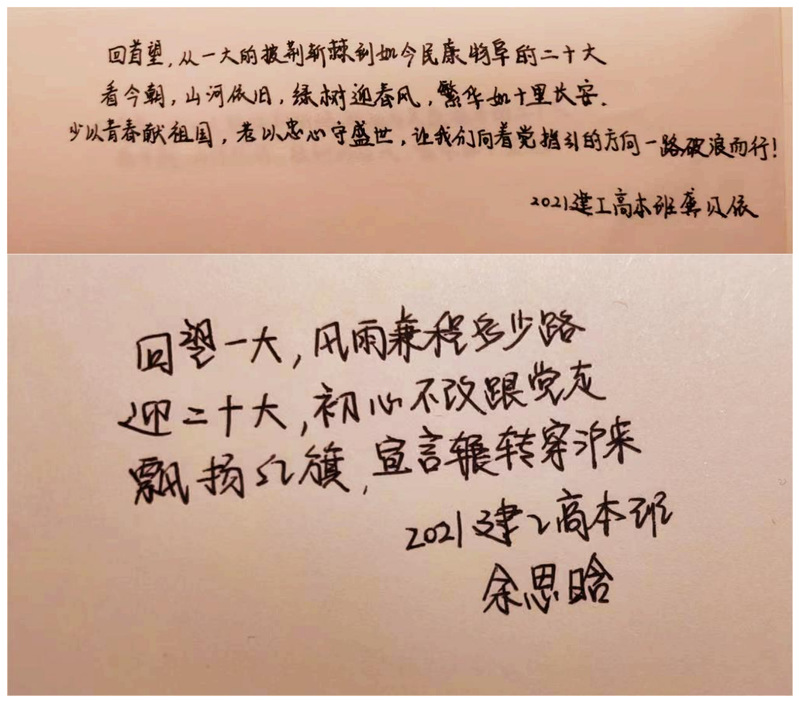 回首望，从一大的披荆斩棘到如今民康物阜的二十大
看今朝，山河依旧，绿树迎春风，繁华如十里长安．
少以青春献祖国，老以忠心守盛世，让我们向着党指引的方向一路破浪而行！
2021建工高本班龚贝依
回望一大，风雨兼程多少路
迎二十大，初心不改跟党走
飘扬红旗，宣言辗转穿沪来
2021建工高本班
余思晗